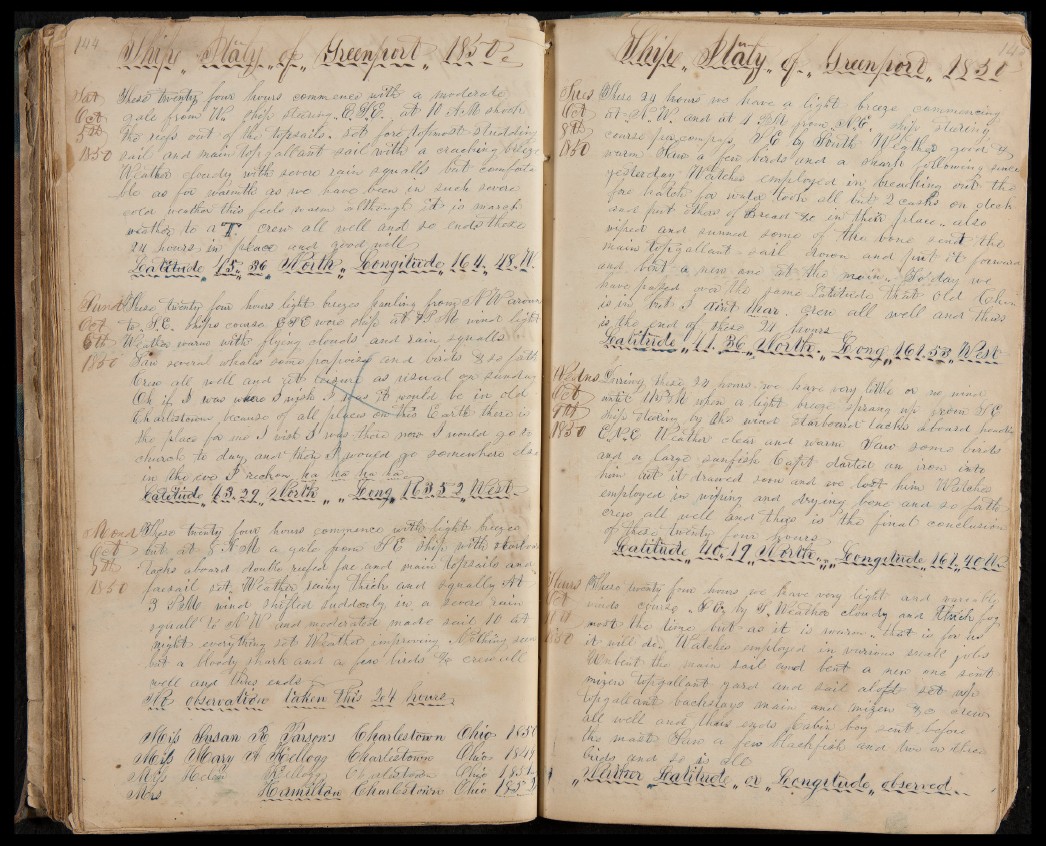 144
Ship Släty of Greenport 1850
Sat Oct 5th 1850
These twenty four hours commence with a moderate
gale from W. Ship steering E.S.E. at 10 A.M shook
the reefs out of the topsails. Set fore topmost studding
sail and main topgallant sail with a cracking breeze
Weather cloudy with severe rain squalls but comforta
ble as for warmth as we have been in such severe
cold weather this feels warm although it is
weather to a T crew all well and so ends these
24 hours in place and good will
Latitude 45. 36 North Longitude 164. 48. W.
Sund Oct 6th 1850
These twenty four hours light breezes hauling from N.W around
to S.E. Ships course E.S.E wore ship at 7 P.M wind light
Weather warm with flying clouds and rain squalls
Saw several whales some porpoises and birds & so forth
Crew all well and at as usual on Sunday
Oh if I was where I wish I was it would be in old
Charlestown because of all places on this Earth there is
the place for me I wish I was there now I would go to
church to day and then I would go somewhere else
in the eve I reckon ha ha ha ha
Latitude 43. 29 North Long 163. 52 West
Mond Oct 7th 1850
These twenty four hours commence with light breezes
but at 8 A.M a gale from S.E Ship with starboard
tacks aboard double reefed fore and main topsails and
foresail set. Weather rainy thick and squally At
3 P.M wind shifted suddenly in a severe rain
squall to N.W and moderated made sail 10 at
night everything set Weather improving Nothing seen
but a bloody shark and a few birds & crew all
well and thus ends
No observation taken this 24 hours
Miss Susan Parsons Charlestown Ohio 1850
Miss Mary Kellogg Charlestown Ohio 1849
Miss Helen Kellogg Charlestown Ohio
Mrs Hamilton Charlestown Ohio
Ship Släty of Greenport 1850
Tues Oct 8th 1850
These 24 hours we have a light breeze commencing
at N.W. and at 1 P.M from N.E. ship steering
course per compass S E by South Weather good &
warm Saw a few birds and a shark following since
yesterday Watches employed in breaking out the
fore hatch for water took all but 2 casks on deck
and put others of Bread &c in their place also
wiped and sunned some of the bone sent the
main topgallant sail down and put it forward
and bent a new one at the main. To day we
have passed over the same Latitude that old
is in but I aint thar. Crew all well and thus
is the end of these 24 hours
Latitude 41. 36 North Long 161. 53 West
Wedns Oct 9th 1850
During these 24 hours we have very little or no wind
until 11 when a light breeze sprang up from S.E
Ship steering by the wind starboard tacks aboard heading
E.N.E Weather clear and warm Saw some birds
and a large sunfish Capt darted an iron into
him but it drawed soon and we lost him Watches
employed in wiping and drying bone and so forth
crew all well and this is the final conclusion
of these twenty four hours
Latitude 40. 19 North Longitude 161. 40 W
Thurs Oct 10 1850
These twenty four hours we have very light and agreeable
winds course S.E. by S. Weather cloudy and thick fog
most the time but as it is warm that is for us
it will do. Watches employed in various small jobs
Unbent the main sail and bent a new one sent
mizen topgallant yard and sail aloft set up
topgallant backstays main and mizen &c crew
all well and thus ends Cabin boy sent before
the mast Saw a few blackfish and two or three
birds and so is
Neither Latitude or Longitude observed